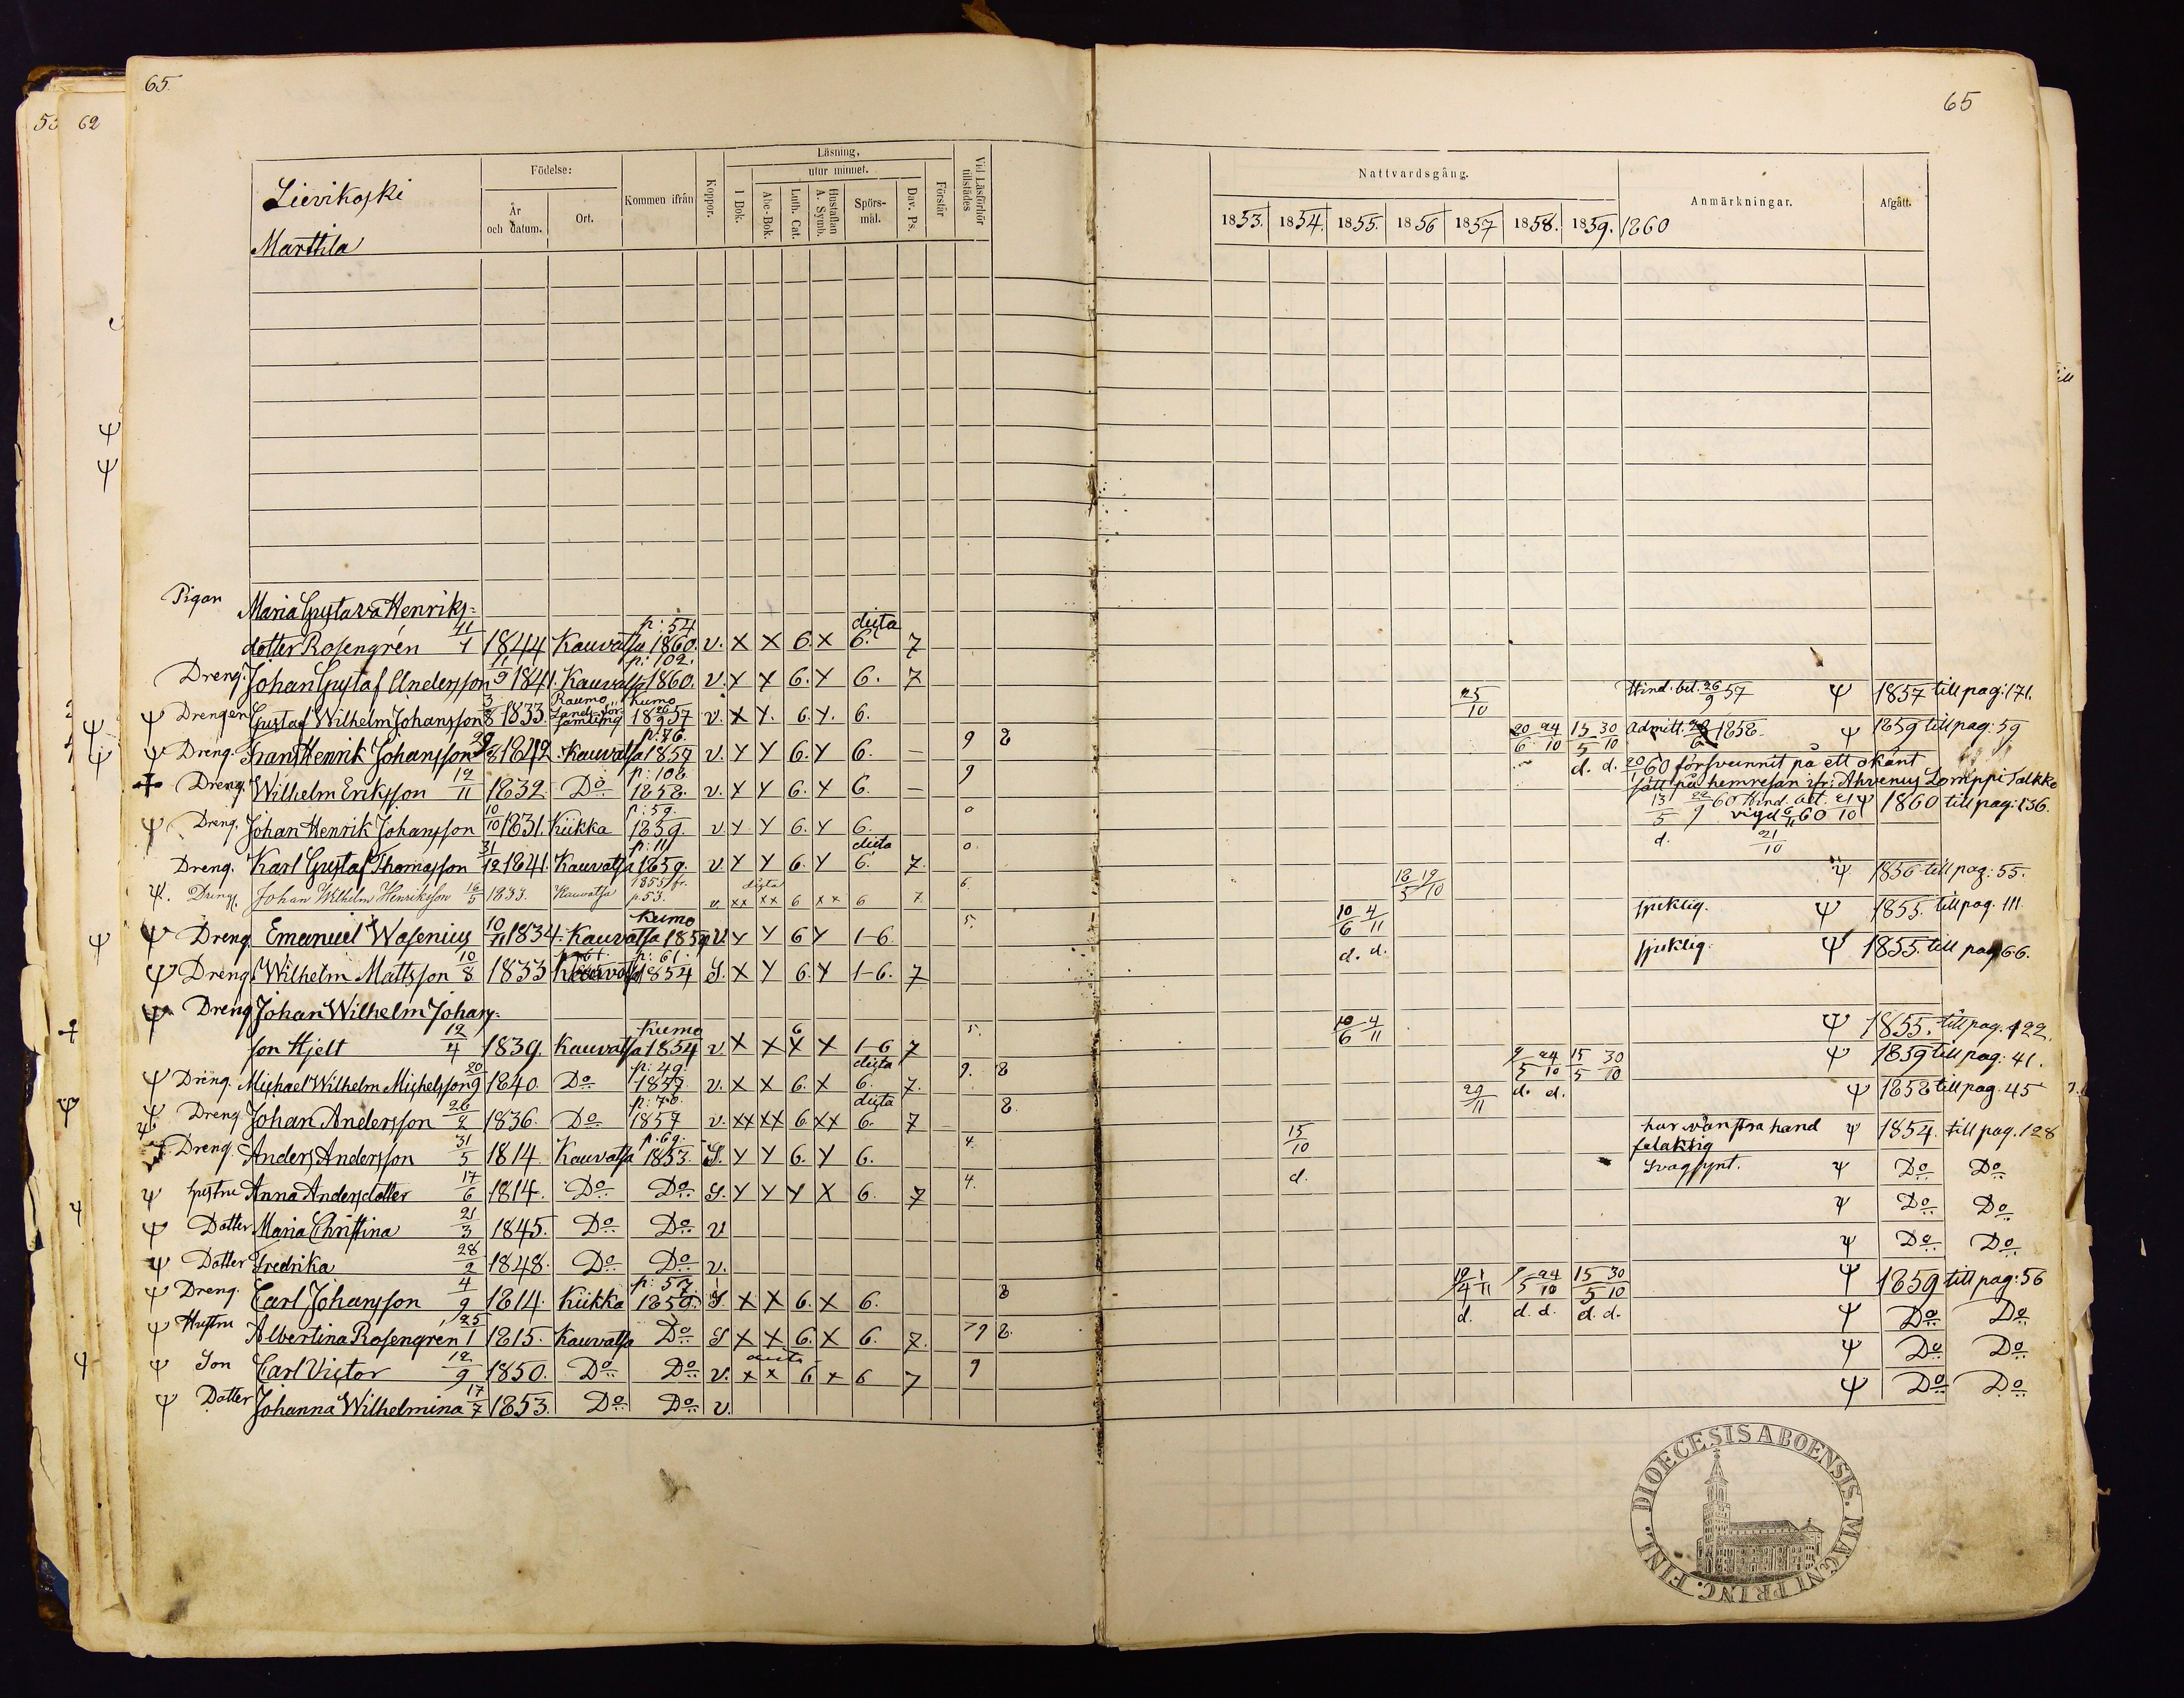 65.
65
53 62
Lievikoski
Marttila
Födelse:
År och datum.
Ort.
Kommen ifrån
Koppor.
Läsning,
utur minnet.
I Bok.
Abc-Bok.
Luth. Cat.
Hustaflan A. Symb.
Spörsmål.
Dav. Ps.
Förstår
Vid Läsförhör tillstädes
Nattvardsgång.
1853. 1854. 1855. 1856 1857 1858. 1859. 1860
Anmärkningar.
Afgått.
Pigan Maria Gustava Henriks=
dotter Rosengrén 11/1 1844 Kauvatsa p: 54 1860. v. x x 6. x dicta 6. 7
Dreng. Johan Gustaf Andersson 11/9 1841. Kauvatsa p: 102. 1860. v. x x 6. x 6. 7
ψ Drengen Gustaf Wilhelm Johansson 3/8 1833. Raumo Lands-församling Kumo 18 26/9 57 v. x x. 6. x. 6. 25/10 Hind. bet. 26/9 57 ψ 1857 till pag: 171.
ψ Dreng. Frans Henrik Johansson 1842. Kauvatsa p: 76. 1859 v. x x 6. x 6. – 9 8 20/6 24/10 15/5 30/10 Admitt. 1858. ψ 1859 till pag: 59
Dreng. Wilhelm Eriksson 12/11 1832 Do p: 108. 1858. v. x x 6. x 6. – 9 d. d. 20/1 60 försvunnit på ett okänt
sätt på hemresan ifr. Ahvenus Lomppi Salkko
ψ Dreng. Johan Henrik Johansson 10/10 1831. Kiikka p: 59. 1859. v. x x 6. x 6. 0 13/5 22/9 60 Hind. bet. vigd 6/11 60 ψ 1860 till pag: 136.
Dreng. Karl Gustaf Thomasson 31/12 1841. Kauvatsa p: 11 1859. v. x x 6. x dicta 6. 7. 0. d. 21/10
ψ. Dreng. Johan Wilhelm Henriksson 16/5 1833. Kauvatsa 1855 fr. p 53. v xx dicta xx 6 xx 6 7 6. 18/5 19/10 ψ 1856 till pag: 55.
ψ Dreng Emanuel Wasenius 10/11 1834. Kauvatsa Kumo 1854 v. x x 6 x 1-6 5. 10/6 4/11 sjuklig. ψ 1855. till pag. 111.
ψ Dreng. Wilhelm Mattsson 10/8 1833 Kauvatsa p: 61. 1854 S. x x 6. x 1-6. 7 d. d. sjuklig. ψ 1855. till pag 66.
ψ Dreng Johan Wilhelm Johans=
son Hjelt 12/4 1839. Kauvatsa Kumo 1854 v. x x 6 x x 1-6 7 5. 10/6 4/11 ψ 1855. till pag. 122.
ψ Dräng. Michael Wilhelm Michelsson 20/9 1840. Do p: 49. 1857. v. x x 6. x dicta 6. 7. 9. 8 9/5 24/10 15/5 30/10 ψ 1859 till pag: 41.
ψ Dreng Johan Andersson 26/2 1836. Do p: 70. 1857 v. xx xx 6. xx dicta 6. 7 8. 29/11 d. d. ψ 1858 till pag. 45
Dreng. Anders Andersson 31/5 1814. Kauvatsa p. 69. 1853. S. x x 6. x 6. 4. 15/10 har vänstra hand
felaktig ψ 1854. till pag. 128
ψ Hustru Anna Andersdotter 17/6 1814. Do Do S. x x x x 6. 7 4. d. Svagsynt. ψ Do Do
ψ Dotter Maria Christina 21/3 1845. Do Do v ψ Do Do
ψ Dotter Fredrika 28/2 1848. Do Do v. ψ Do Do
ψ Dreng. Carl Johansson 4/9 1814. Kiikka p: 57 1859. S. x x 6. x 6. 8 19/4 1/11 9/5 24/10 15/5 30/10 ψ 1859 till pag: 56
ψ Hustru Albertina Rosengrén 25/1 1815. Kauvatsa Do S x x 6. x 6. 7. 79 8. d. d. d. d. d. ψ Do Do
ψ Son Carl Victor 12/9 1850. Do Do v. x dicta x 6 x 6 7 9 ψ Do Do
ψ Dotter Johanna Wilhelmina 17/7 1853. Do Do v. ψ Do Do
DIOECESIS ABOENSIS. MAGNI PRINC. FINL.